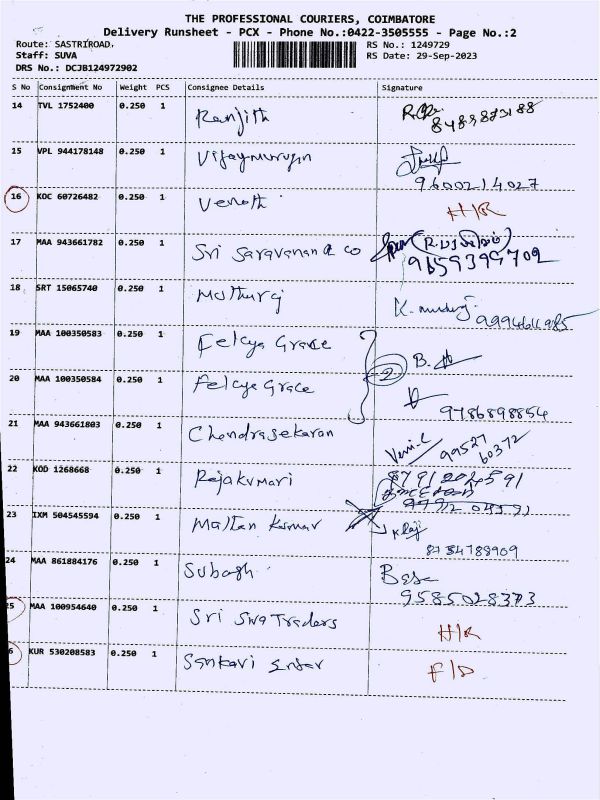 THE PROFESSIONAL COURIERS, COIMBATORE
Delivery Runsheet - PCX - Phone No.:0422-3505555 - Page No.:2
Route: SASTRIROAD,
RS No.: 1249729
Staff: SUVA
RS Date: 29-Sep-2023
DRS No.: DCJB124972902
S No Consignment No Weight PCS Consignee Details Signature
14 TVL 1752400 0.250 1 Ranjith
15 VPL 944178148 0.250 1 Vijaymurugan
9600214027
16 KOC 60726482 0.250 1 H/R
17 MAA 943661782 0.250 1 Sri Saravanan & co
9659399702
18 SRT 15065740 0.250 1 K.
19 MAA 100350583 0.250 1 Felcya Grace B.
2
20 MAA 100350584 0.250 1 Felcya Grace
9786898854
21 MAA 943661803 0.250 1 Chandrasekaran 99527
60372
22 KOD 1268668 0.250 1 Rajakumari 8791204591
23 IXM 504545594 0.250 1 Kumar
24 MAA 861884176 0.250 1 Subash
9585028373
25 MAA 100954640 0.250 1 Sri Swa Traders H/R
KUR 530208583 0.250 1 Sankari F/D